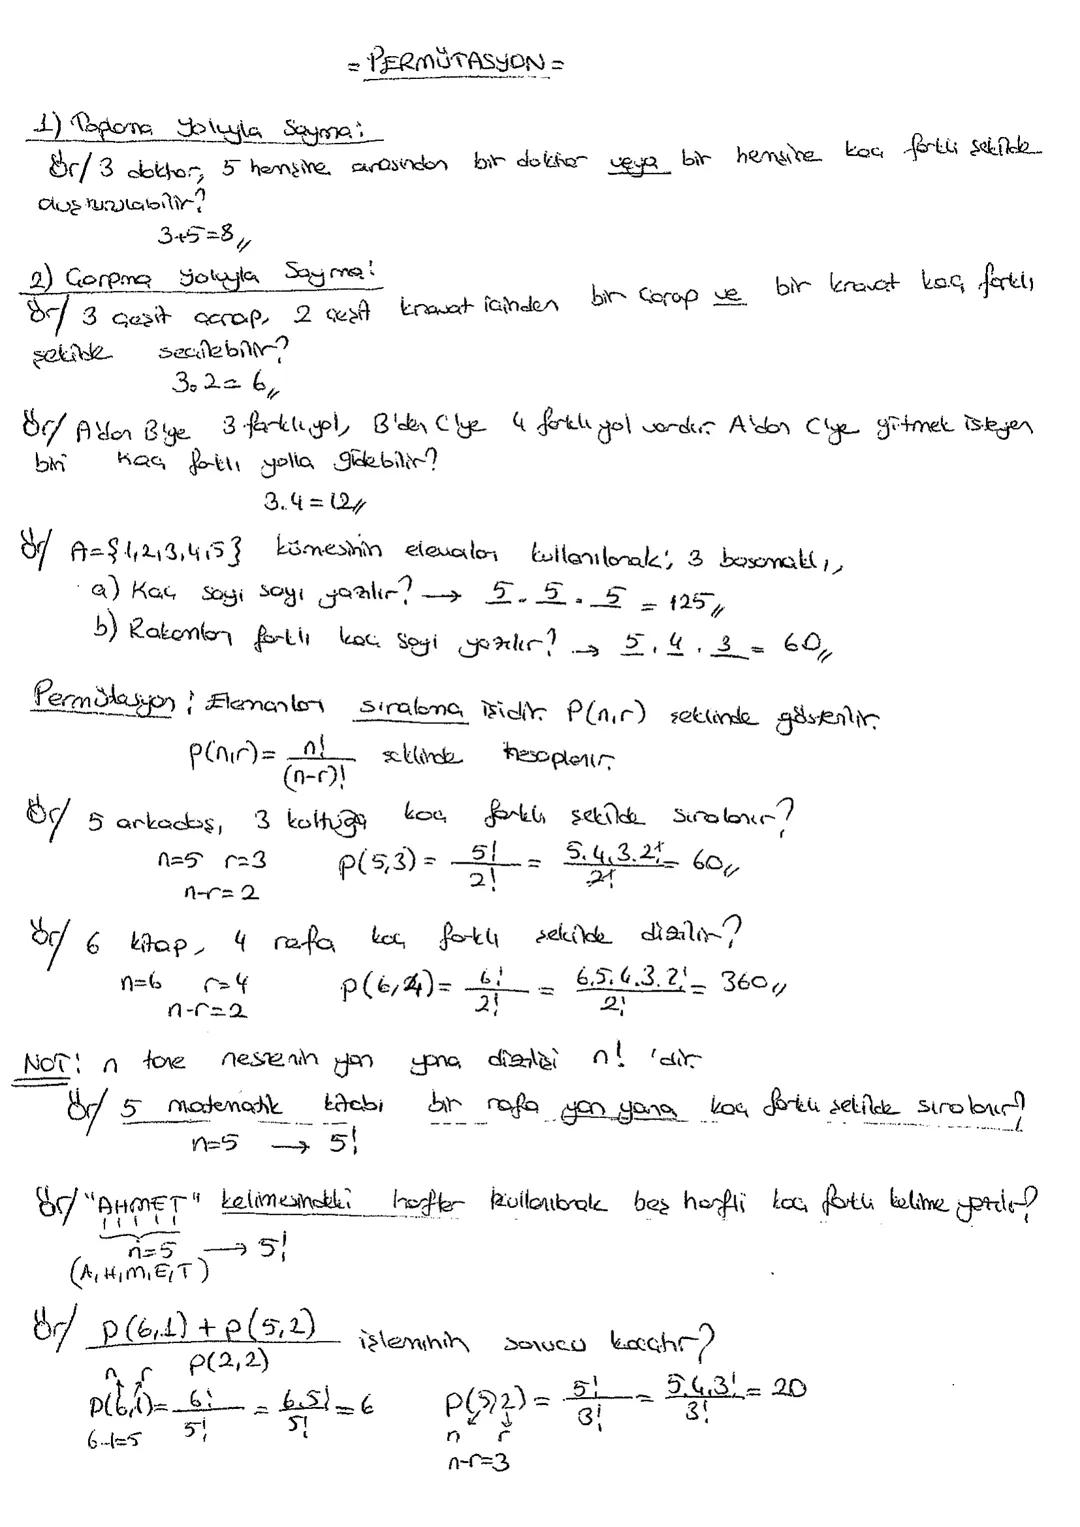 = PERMÜTASYON =
1) Toplama Yoluyla Sayma:
Ör/ 3 doktor, 5 hemşire arasından bir doktor veya bir hemşire kaç farklı şekilde
oluşturulabilir?
3+5=8//
2) Çarpma Yoluyla Sayma:
Ör/ 3 çeşit çorap, 2 çeşit kravat içinden bir çorap ve bir kravat kaç farklı
şekilde seçilebilir?
3.2= 6//
Ör/ A'dan B'ye 3 farklı yol, B'den C'ye 4 farklı yol vardır. A'dan C'ye gitmek isteyen
biri kaç farklı yolla gidebilir?
3.4=12//
Ör/ A={1,2,3,4,5} kümesinin elemanları kullanılarak; 3 basamaklı,
a) Kaç sayı sayı yazılır? → 5 . 5 . 5 = 125//
b) Rakamları farklı kaç sayı yazılır? → 5 . 4 . 3 = 60//
Permütasyon ; Elemanları sıralama işidir. P(n,r) şeklinde gösterilir.
P(n,r)= n!/(n-r)! şeklinde hesaplanır.
Ör/ 5 arkadaş, 3 koltuğa kaç farklı şekilde sıralanır?
n=5 r=3 P(5,3) = 5!/2! = 5.4.3.2!/2! = 60//
n-r=2
Ör/ 6 kitap, 4 rafa kaç farklı şekilde dizilir?
n=6 r=4 P(6,4)= 6!/2! = 6.5.4.3.2!/2! = 360//
n-r=2
NOT: n tane nesnenin yan yana dizilişi n! 'dir.
Ör/ 5 matematik kitabı bir rafa yan yana kaç farklı şekilde sıralanır?
n=5 → 5!
Ör/ "AHMET" kelimesindeki harfler kullanılarak beş harfli kaç farklı kelime yazılır?
n=5 → 5!
(A,H,M,E,T)
Ör/ P(6,1) + P(5,2) / P(2,2) işleminin sonucu kaçtır?
n r
P(6,1)= 6!/5! = 6.5!/5! = 6 P(5,2) = 5!/3! = 5.4.3!/3! = 20
6-1=5 n r
n-r=3